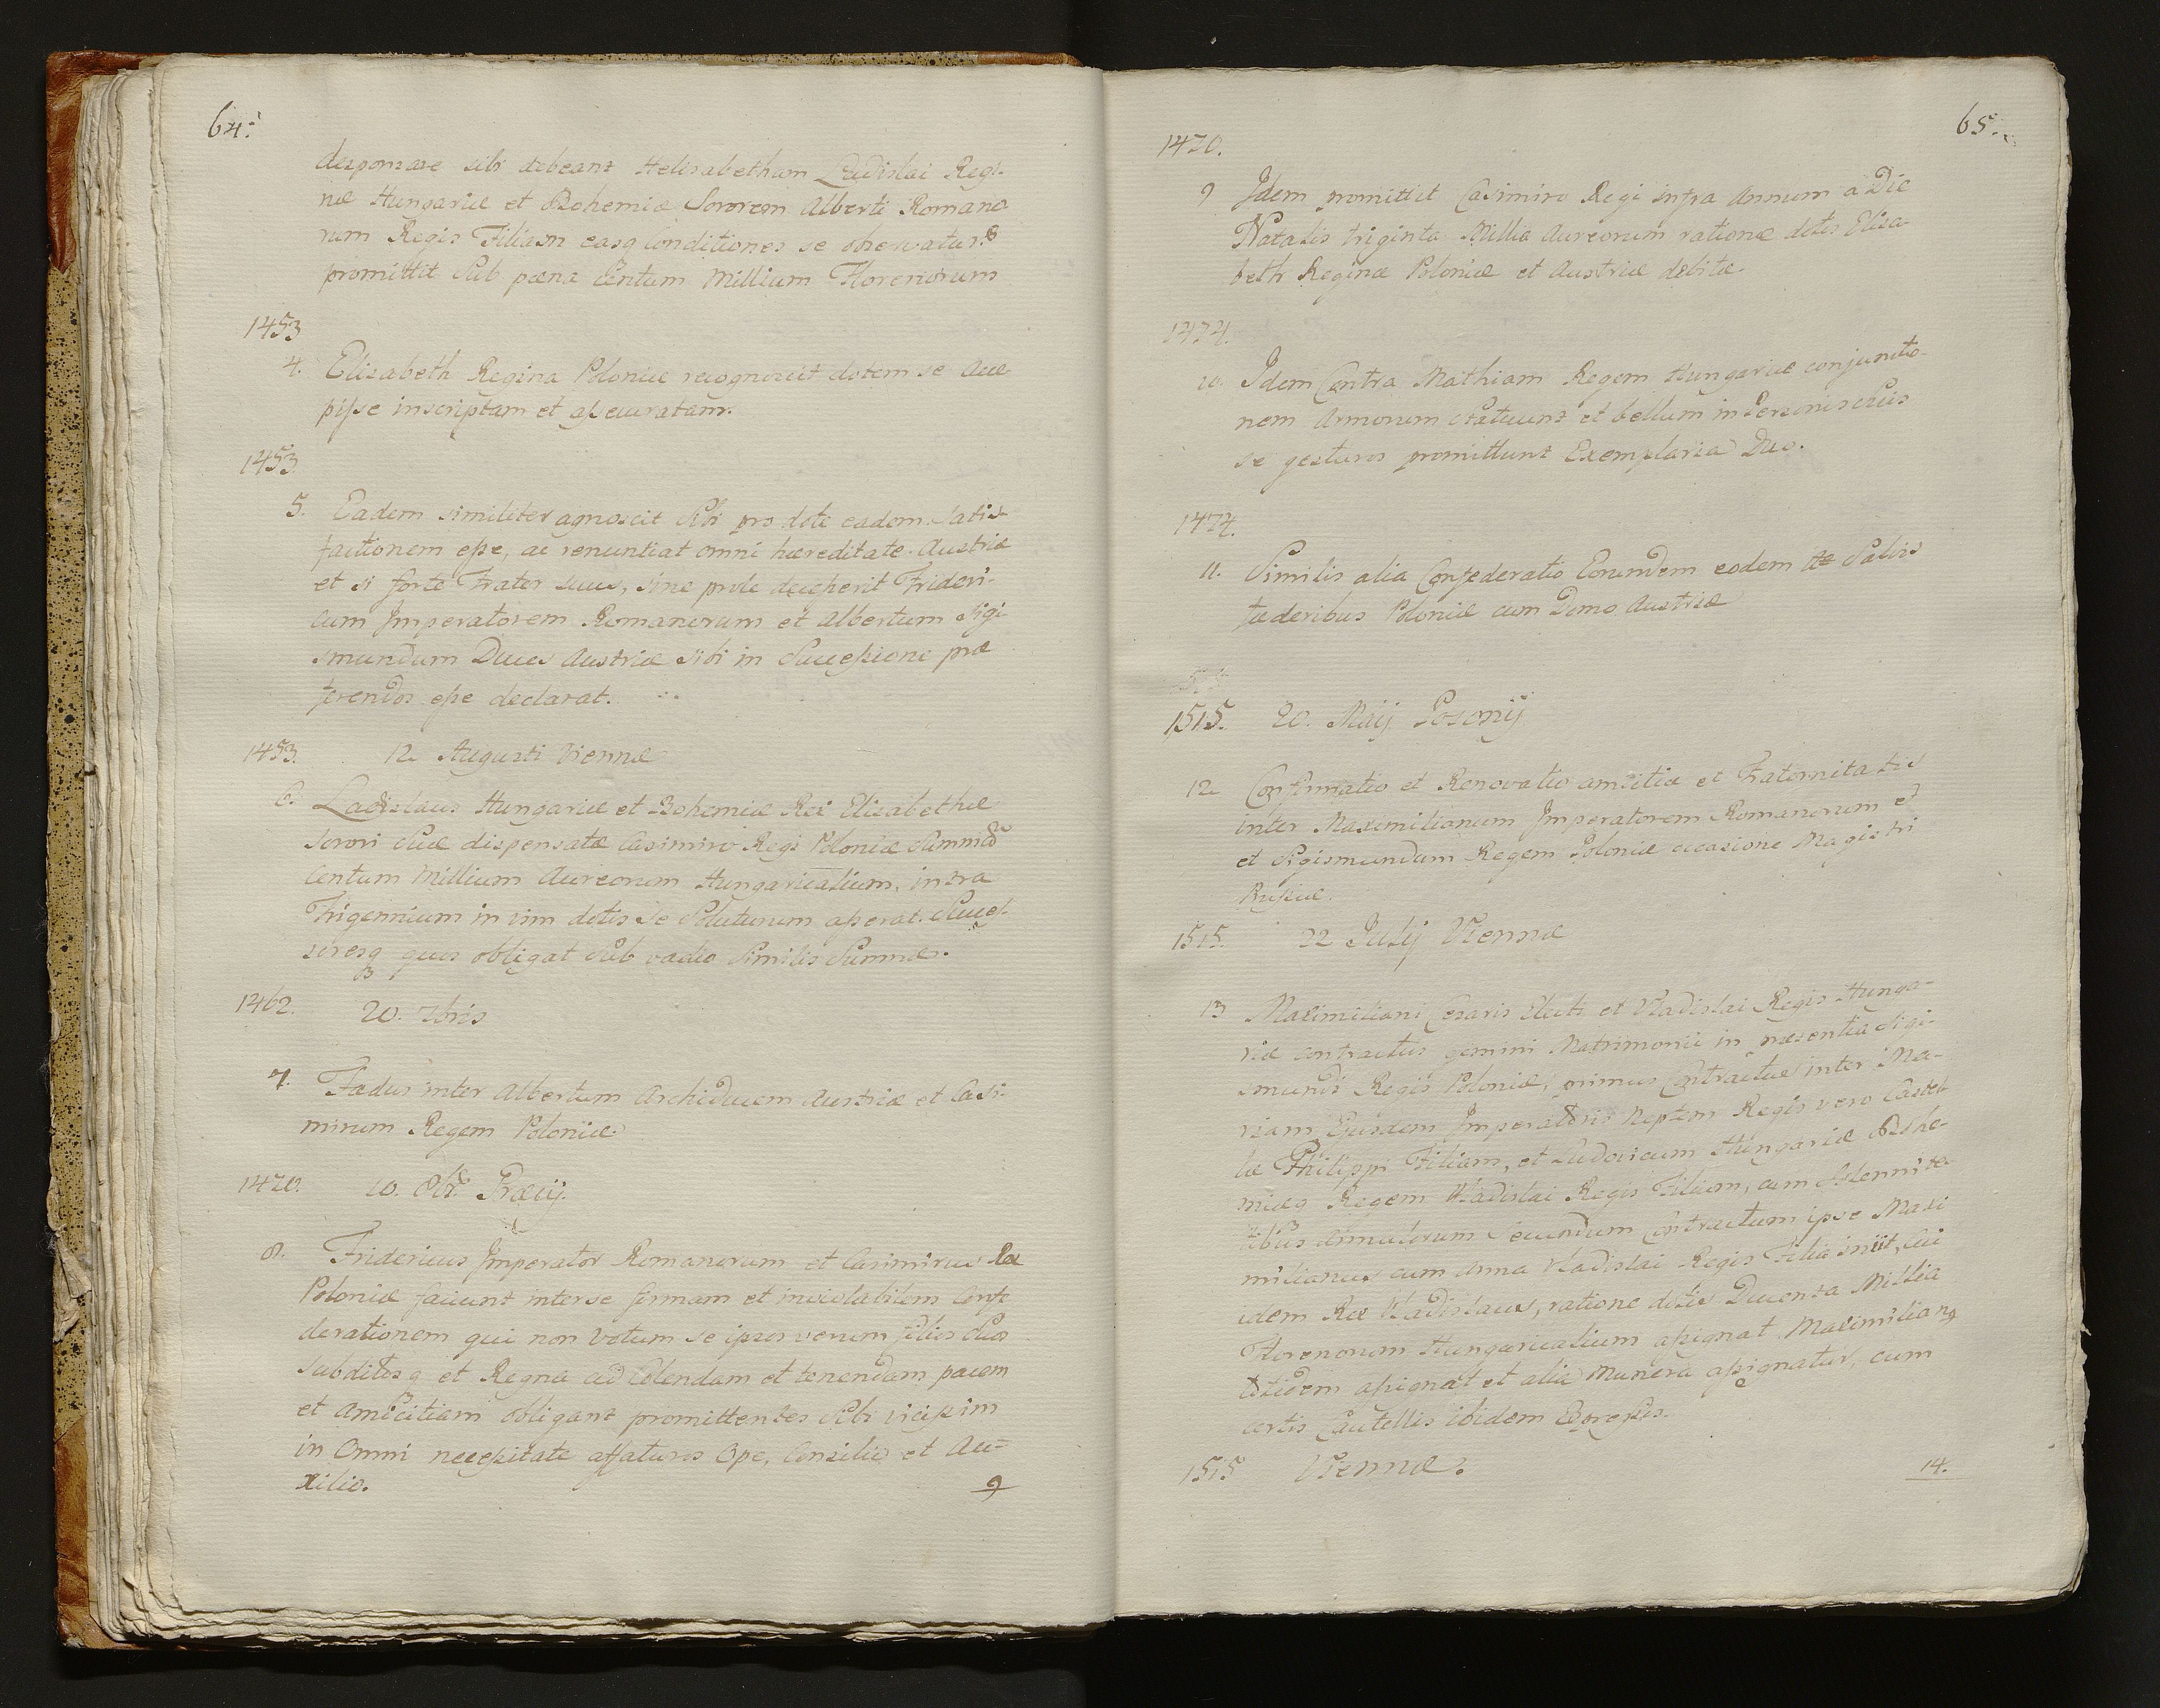 64.
desponsare sibi debeant Helisabetham Ladislai Regi-
næ Hungariæ et Bohemiæ Sororem Alberti Romano
rum Regis Filiam easq Conditiones se observatur9
promittit Sub pœna Centum Millium Florenorum
1453
4. Elisabeth Regina Poloniæ recognoscit dotem se acce
pisse inscriptam et assecuratam.
1453
5. Eadem similiter agnoscit sibi pro dote eadem satis-
factionem esse, ac renuntiat omni hæreditate Austriæ
et si forte Frater suus, sine prole decesserit Frideri-
cum Imperatorem Romanorum et Albertum Sigi
smundum Duces Austriæ sibi in Successione præ
ferendos esse declarat.
1453. 12 Augusti Viennæ
6. Ladislaus Hungariæ et Bohemiæ Rex Elisabethæ
sorori Suæ dispensatæ Casimiro Regi Poloniæ Summã
Centum Millium Aureorum Hungaricalium, intra
Trigennium in vim dotis Se Soluturum asserat. Succes-
soresq quos obligat Sub vadio Similis Summæ.
1462. 20. 7bris
7. Fædus inter Albertum Archiducem Austriæ et Casi-
mirum Regem Poloniæ.
1470. 10. 8br. Græcij.
8. Fridericus Imperator Romanorum et Casimirus Rex
Poloniæ faciunt inter se firmam et inviolabilem Confe
derationem qui non Votum se ipsos verum filios Suos
Subditosq et Regna ad Colendam et tenendam pacem
et Amicitiam obligant promittentes Sibi vicissim
in Omni necessitate affaturos Ope, Consilio et Au=
xilio.
9
65.
1470.
9 Idem promittit Casimiro Regi infra Annum a Die
Natalis triginta Millia Aureorum ratione dotis Elisa-
beth Reginæ Poloniæ et Austriæ debitæ.
1474.
10. Idem Contra Mathiam Regem Hungariæ conjunctio-
nem Armorum Statuunt et bellum in Personis Suis
se gesturos promittunt Exemplaria Duo.
1474.
11. Similis alia Confederatio Eorundem eodem Salvis
fæderibus Poloniæ cum Domo Austriæ
1515. 20. Maij Posonij
12 Confirmatio et Renovatio amicitiæ et Fraternitatis
inter Maximilianum Imperatorem Romanorum et
et Sigismundum Regem Poloniæ occasione Magistri
Russiæ.
1515. 22 Julij Viennæ
13 Maximiliani Cesaris Electi et Vladislai Regis Hunga-
riæ contractus gemini Matrimonii in præsentia Sigi-
smundi Regis Poloniæ, primus Contractus inter Ma-
riam Ejusdem Imperatoris Neptem Regis vero Castel
læ Philippi Filiam, et Ludovicum Hungariæ Bohe-
miæq Regem Vladislai Regis Filium, cum Solennita
tibus Annulorum Secundum Contractum ipse Maxi
milianus cum Anna Vladislai Regis Filia iniit, cui
idem Rex Vladislaus, ratione dotis Ducenta Millia
Florenorum Hungaricalium assignat, Maximilian9
totidem assignat et alia Munera assignatur, cum
certis Cautellis ibidem Expressis.
1515 Viennæ.
14.